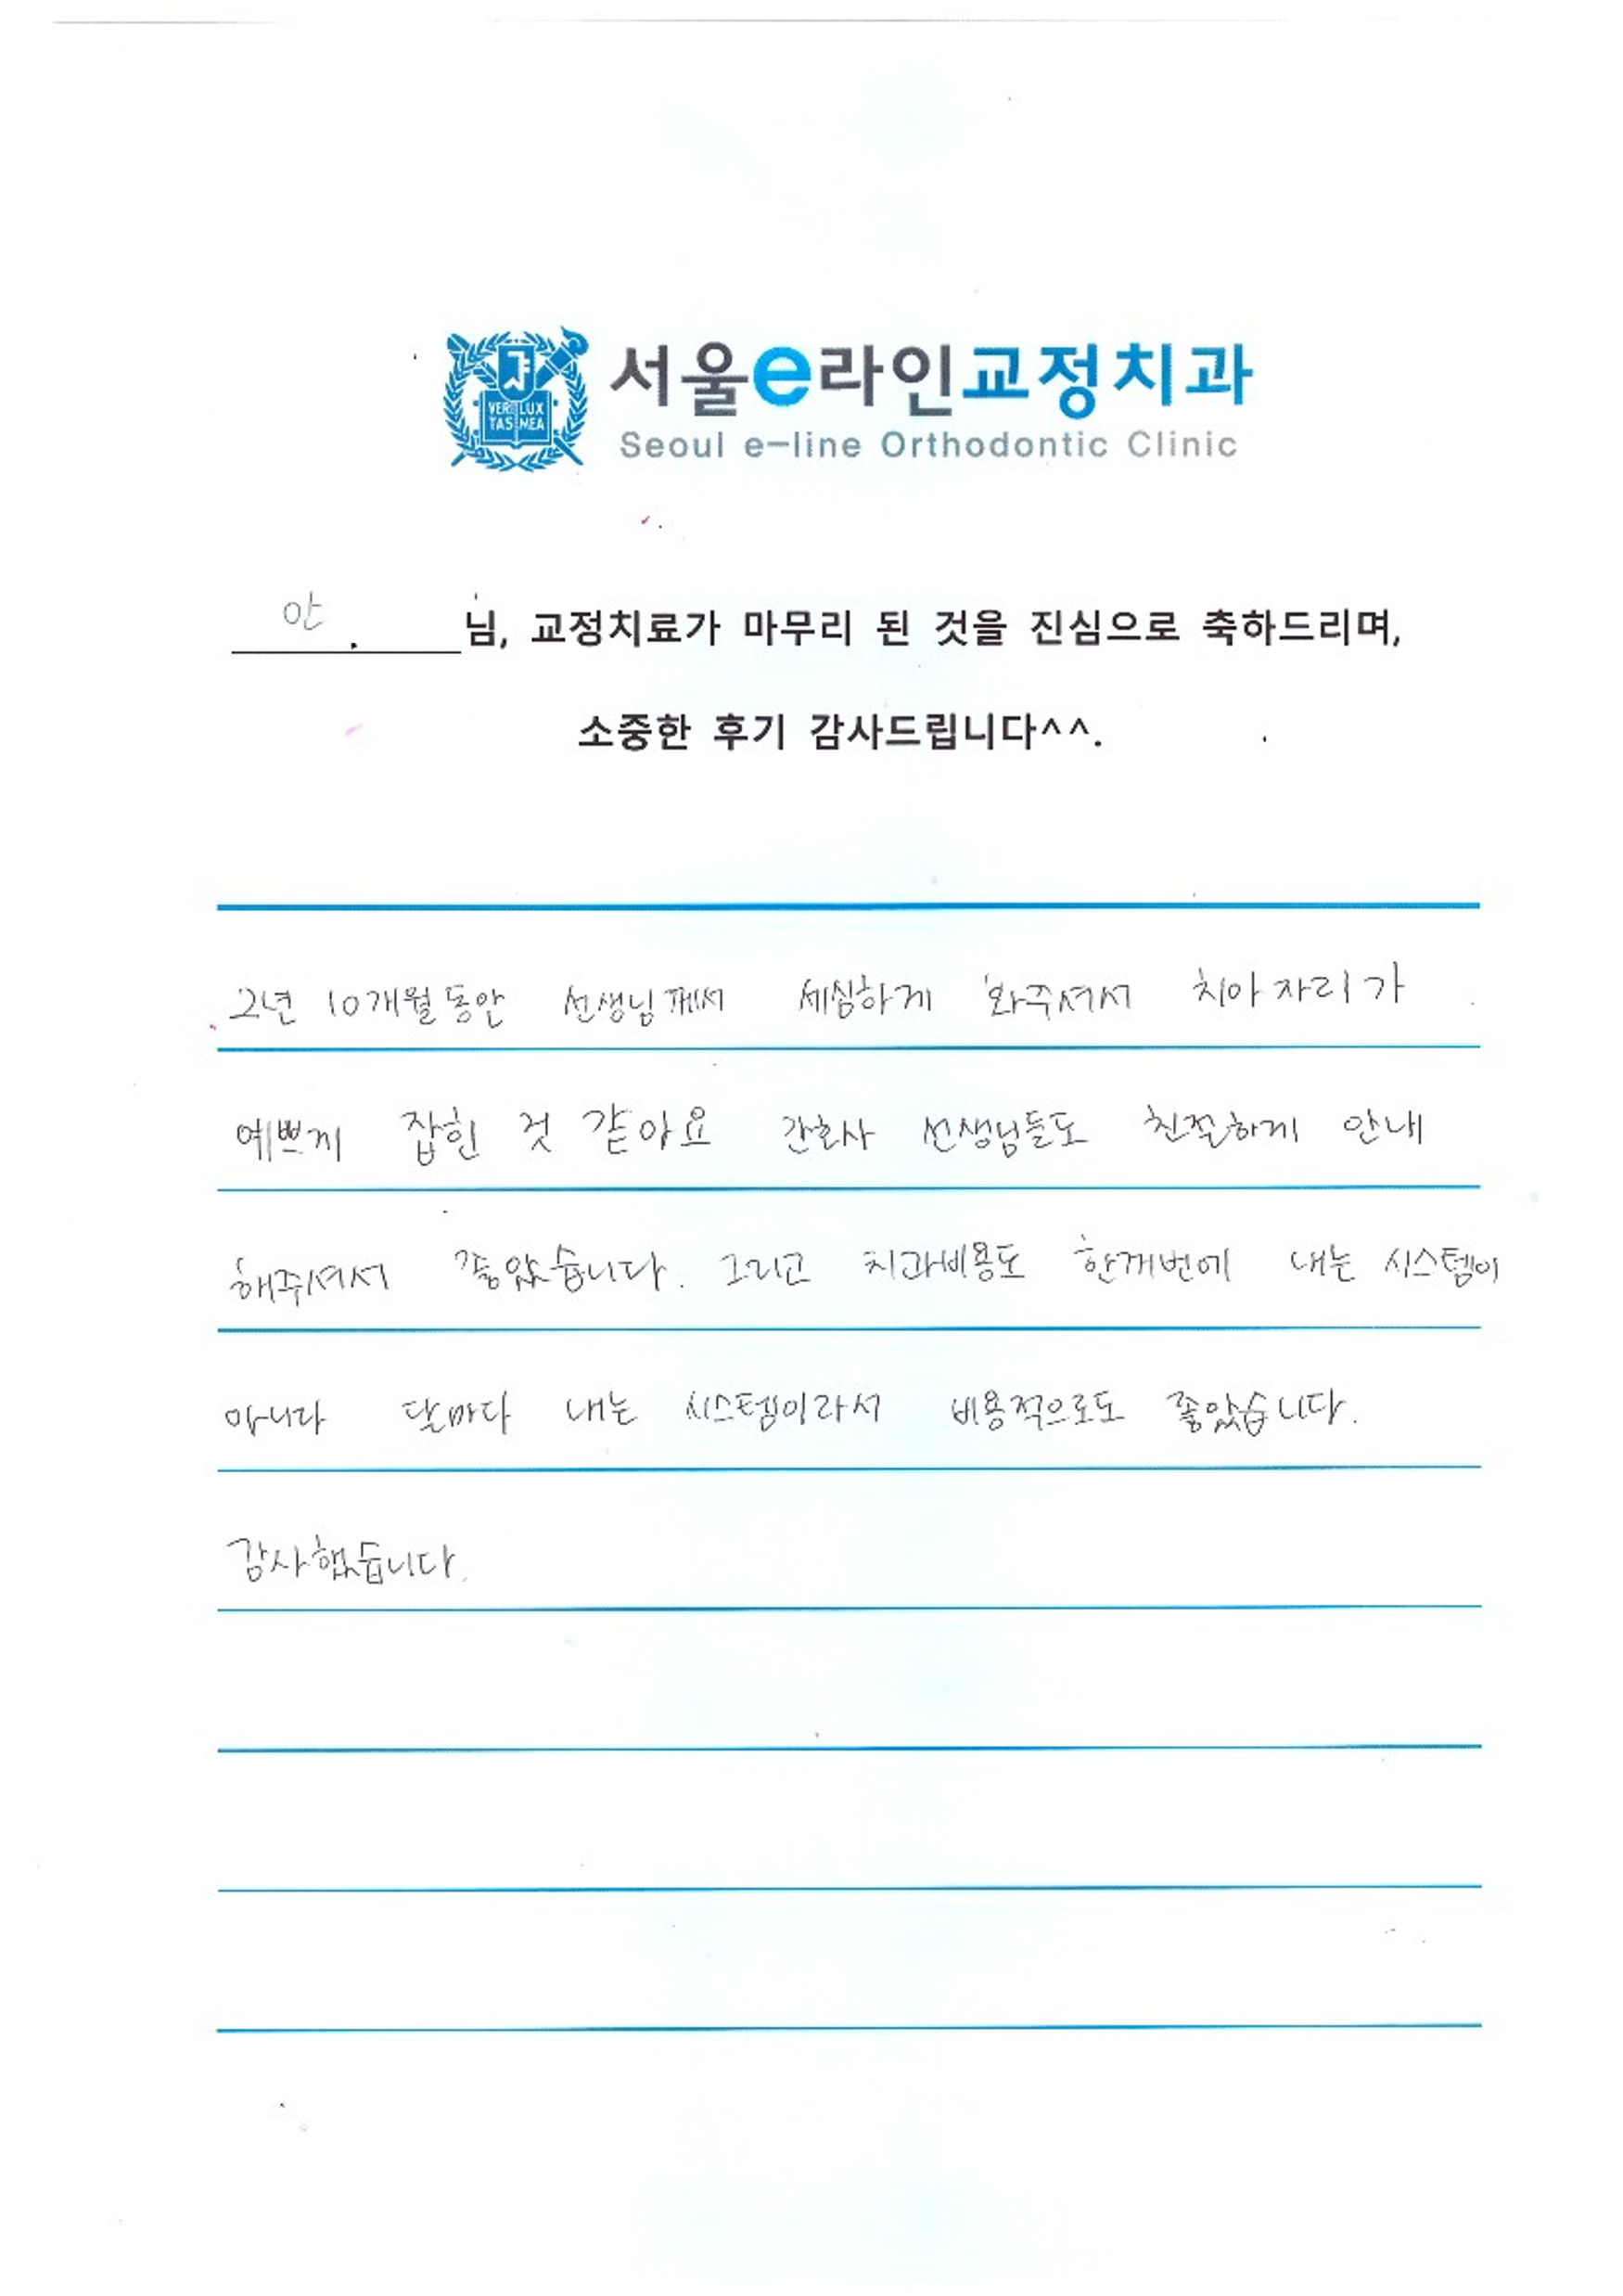 서울e라인교정치과
VERI LUX
TAS MEA
Seoul e-line Orthodontic Clinic
안 님, 교정치료가 마무리 된 것을 진심으로 축하드리며,
소중한 후기 감사드립니다^^.
2년 10개월동안 선생님께서 세심하게 봐주셔서 치아자리가
예쁘게 잡힌 것 같아요 간호사 선생님들도 친절하게 안내
해주셔서 좋았습니다. 그리고 치과비용도 한꺼번에 내는 시스템이
아니라 달마다 내는 시스템이라서 비용적으로도 좋았습니다.
감사했습니다.